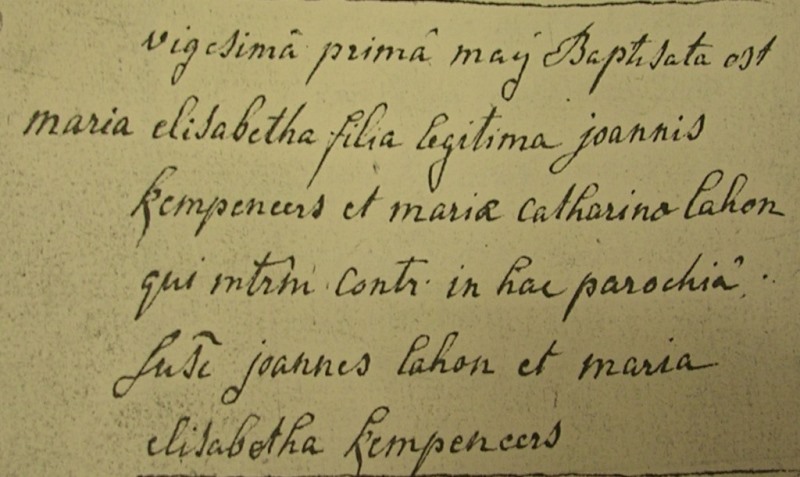 vigesimâ primâ maÿ Baptisata est
maria elisabetha filia legitima joannis
kempeneers et mariæ catharinæ lahon
qui mtrm̄ contr. in hac parochiâ.
susc̄ joannes lahon et maria
elisabetha kempeneers